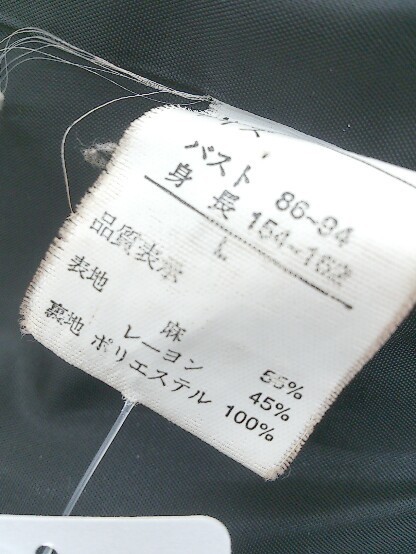 バスト 86~94
身長 154~162
L
品質表示
表地 麻 55%
レーヨン 45%
裏地 ポリエステル 100%